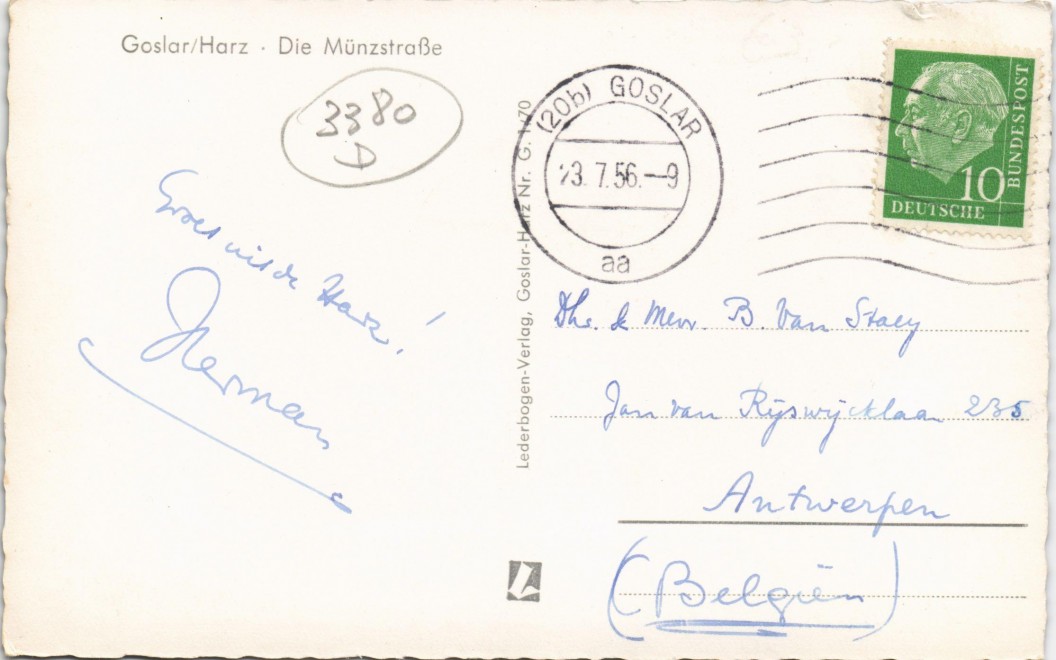 Goslar/Harz · Die Münzstraße
3380
D
Groet uit de Harz!
Herman
Lederbogen-Verlag, Goslar-Harz Nr. G. 1170
(20b) GOSLAR
23.7.56.–9
aa
BUNDESPOST
10
DEUTSCHE
Dhr. & Mevr. B. Van Staey
Jan van Rijswijcklaan 235
Antwerpen
(Belgiën)